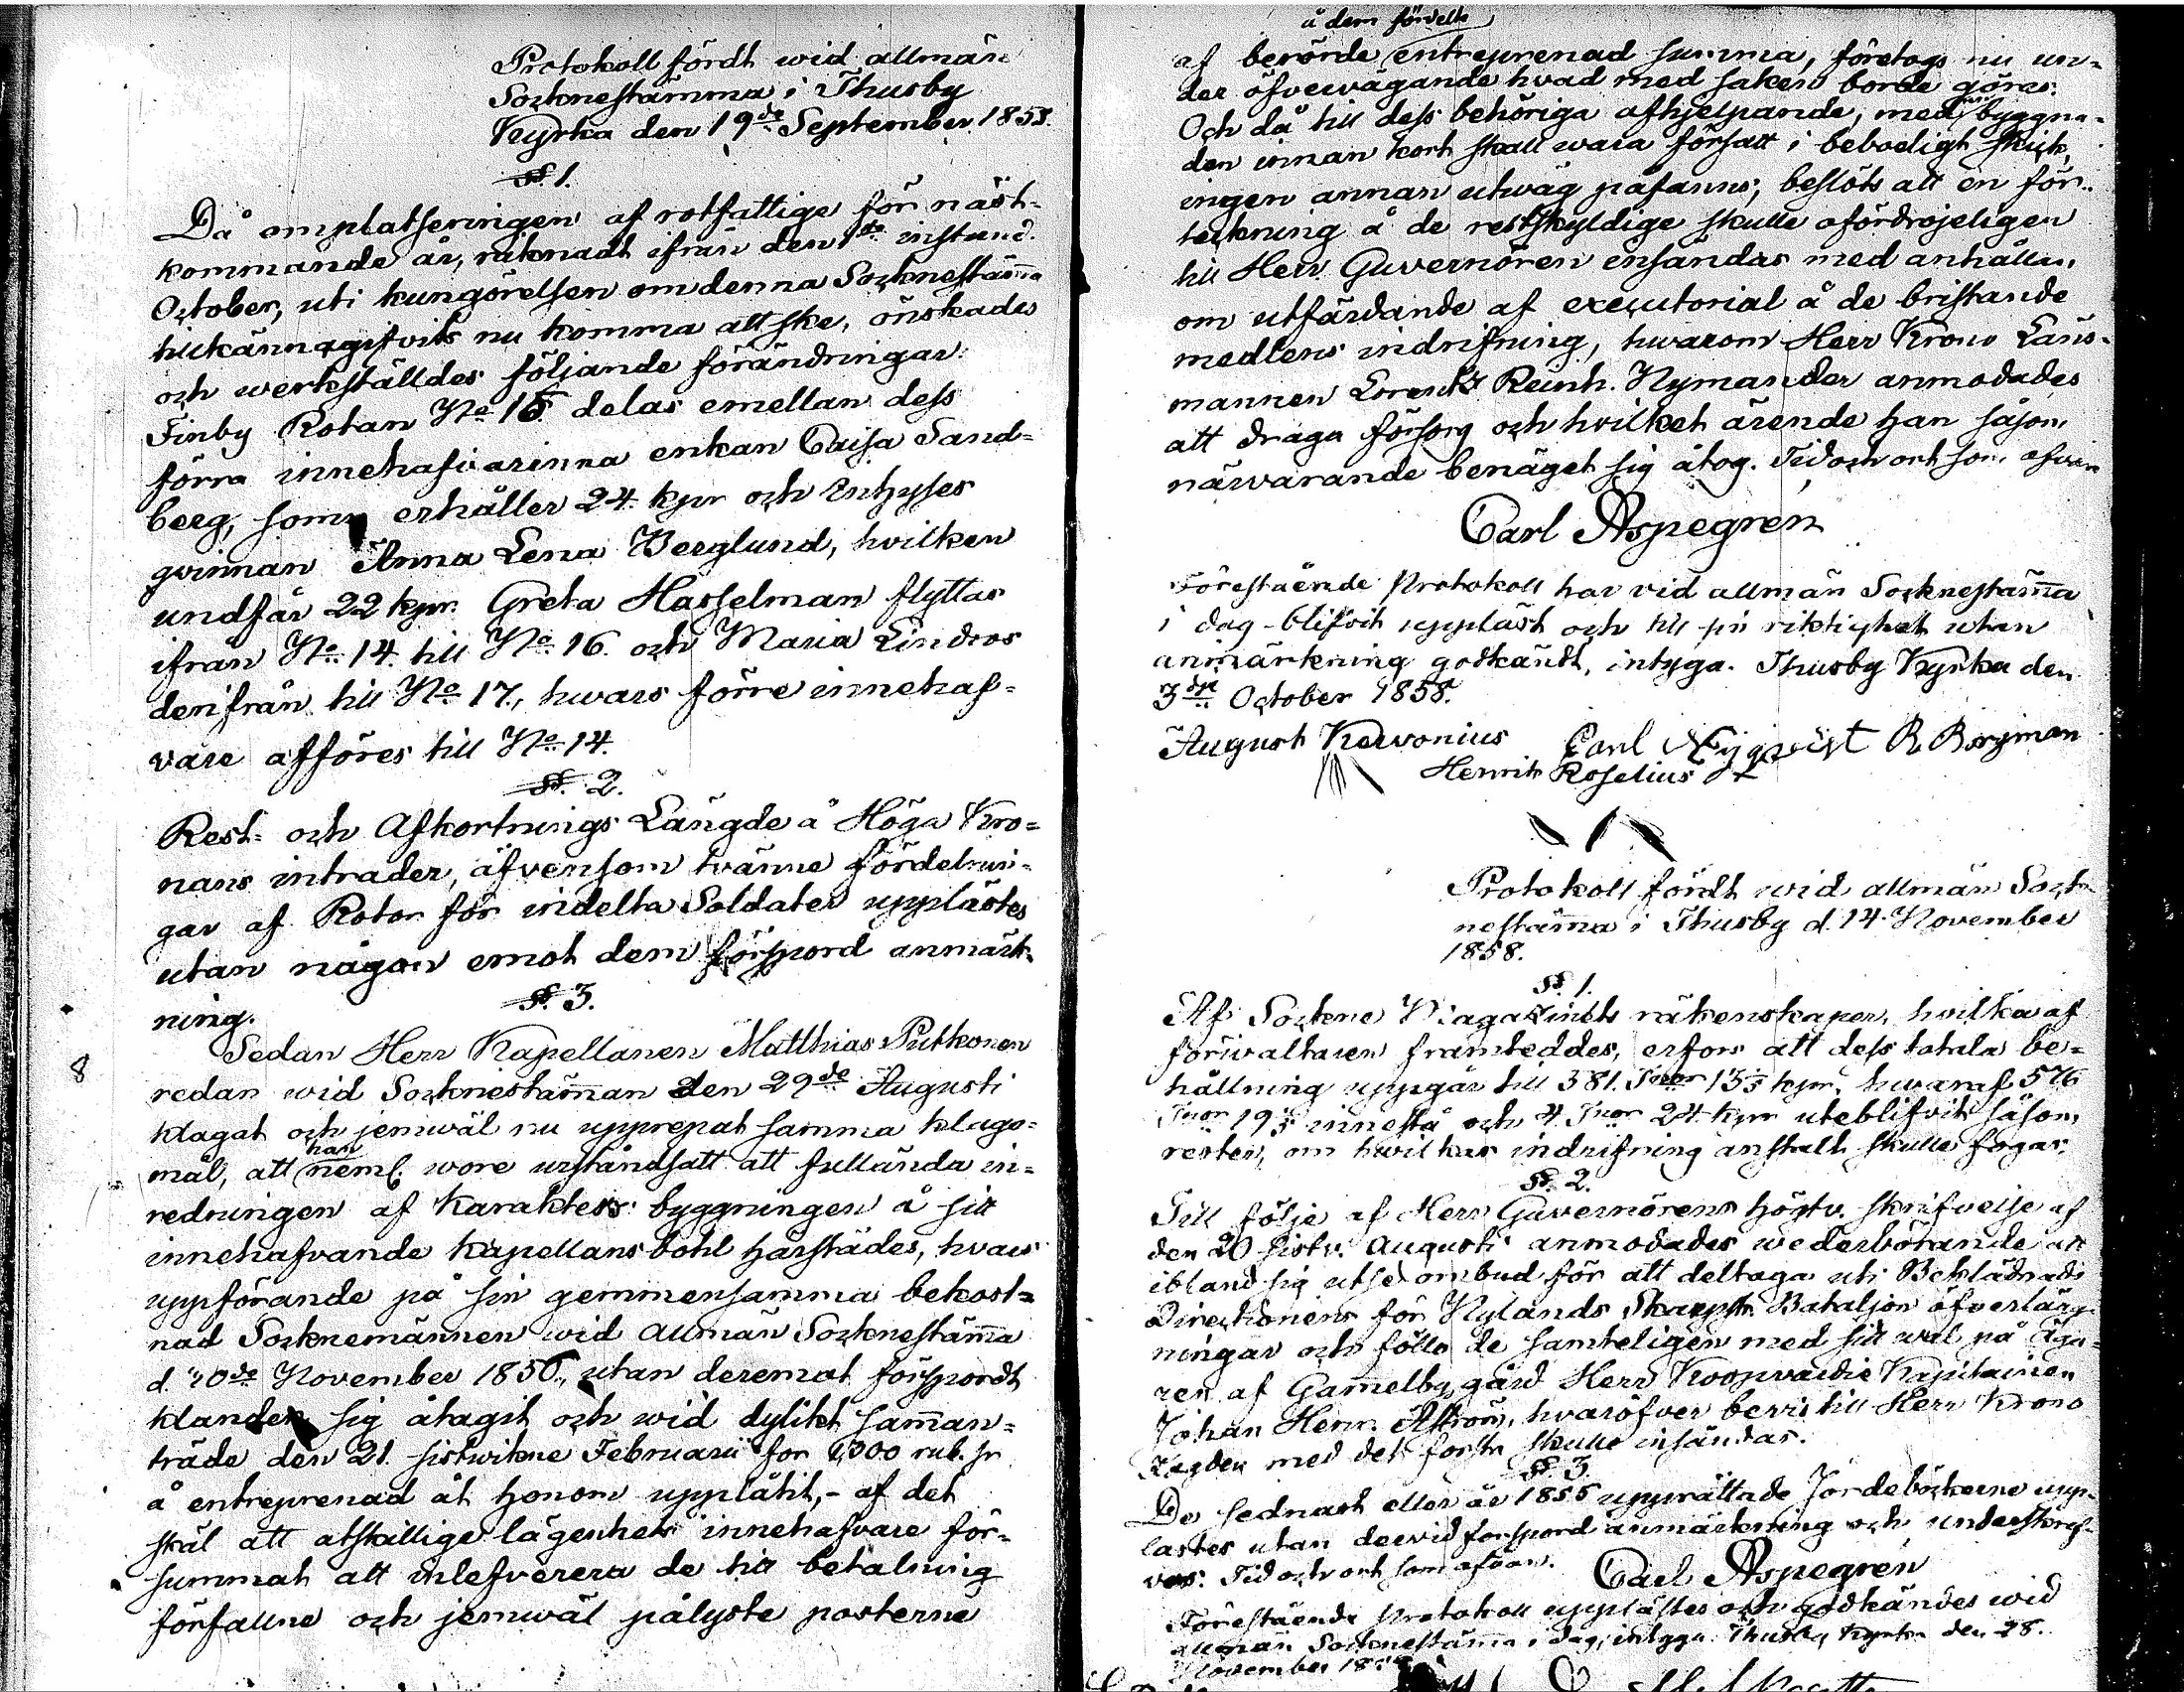 Protokoll fördt wid allmän
Socknestämma i Thusby
Kyrka den 19de September 1858.
§. 1.
Då omplatseringen af rotfattige för näst-
kommande år, räknadt ifrån den 1de instund.
October, uti kungörelsen om denna Socknestäm̄a
tillkännagifvits nu komma att ske, önskades
och werkställdes följande förändringar:
Finby Rotan No 15 delas emellan dess
förra innehafvarinna enkan Caisa Sand-
berg, som erhåller 24 kpr och Inhyses
qvinnan Anna Lena Berglund, hvilken
undfår 22 kpr. Greta Hasselman flyttas
ifrån No 14. till No 16. och Maria Lindros
derifrån till No 17., hwars förre innehaf-
vare afföres till No 14.
§. 2.
Rest- och Afkortnings Längde å Höga Kro-
nans intrader, äfvensom tvänne fördelnin-
gar af Rotor för indelta Soldater upplästes
utan någon emot dem förspord anmärk-
ning.
§. 3.
Sedan Herr Kapellanen Matthias Putkonen
8
redan wid Socknestäm̄an den 29de Augusti
klagat och jemwäl nu upprepat samma klago-
han
mål, att neml. wore urståndsatt att fullända in-
redningen af Karakters byggningen å sitt
innehafvande Kapellans bohl härstädes, hvars
uppförande på sin gemmensamma bekost-
nad Socknemännen wid allmän Socknestäm̄a
d. 10de November 1856, utan deremot förspordt
klander sig åtagit och wid dylikt sam̄an-
träde den 21. sistwikne Februarii för 1,000 rub. sr
å entreprenad åt honom upplåtit, - af det
skäl att atskillige lägenhets innehafvare för-
summat att inlefverera de till betalning
förfallne och jemwäl pålyste posterne
å dem fördelte
af berörde entreprenad summa, företogs nu un-
der öfvervägande hvad med saken borde göras.
Och då till dess behöriga afhjelpande, med byggna-
den innan kort skall wara försatt i beboeligt skick,
ingen annan utwäg påfanns, beslöts att en för-
teckning å de restskyldige skulle ofördröjeligen
till Herr Guvernören insändas med anhållan,
om utfärdande af executorial å de bristande
medlens indrifning, hwarom Herr Krono Läns-
mannen Lorentz Reinh. Nymander anmodades
att draga försorg och hvilket ärende han såsom
närwarande benäget sig åtog. Tid och ort som ofvan
Carl Aspegrén
Förestående Protokoll har vid allmän Socknestäm̄a
i dag blifvit uppläst och till sin riktighet utan
anmärkning godkändt, intyga. Thusby Kyrka den
3dje October 1858.
August Kewonius Carl Nyqvist R Borgman
Henrik Roselius
Protokoll fördt wid allmän Sock-
nestäm̄a i Thusby d. 14 November
1858.
§. 1.
Af Sockne Magazinets räkenskaper, hvilka af
förwaltaren framteddes, erfors att dess totala be-
hållning uppgår till 381. Tnor kpr, hwaraf 376
Tnor innestå och 4 Tnor 24 kpr uteblifvit såsom
rester, om hwilkas indrifning anstalt skulle fogas.
§. 2.
Till följe af Herr Guvernörens högtv. skrifvelse af
den 20 sistv. Augusti anmodades wederbörande att
ibland sig utse ombud för att deltaga uti Beklädnads
Directionens för Nylands Skarpsk. Bataljon öfverlägg-
ningar och föllo de samteligen med sitt wal på Äga-
ren af Gam̄elby gård Herr Koopvardie Kapitainen
Johan Henr. Åström, hvaröfver bevis till Herr Krono
Fogden med det första skulle insändas.
§. 3.
De sednast eller år 1855 upprättade Jordeböckerne upp-
lästes utan dervid förspord anmärkning och underskref-
vos. Tid och ort som ofvan.
Carl Aspegrén
Förestående Protokoll upplästes och godkändes wid
allmän Sockenstäm̄a i dag, intyga. Thusby Kyrka den 28.
November